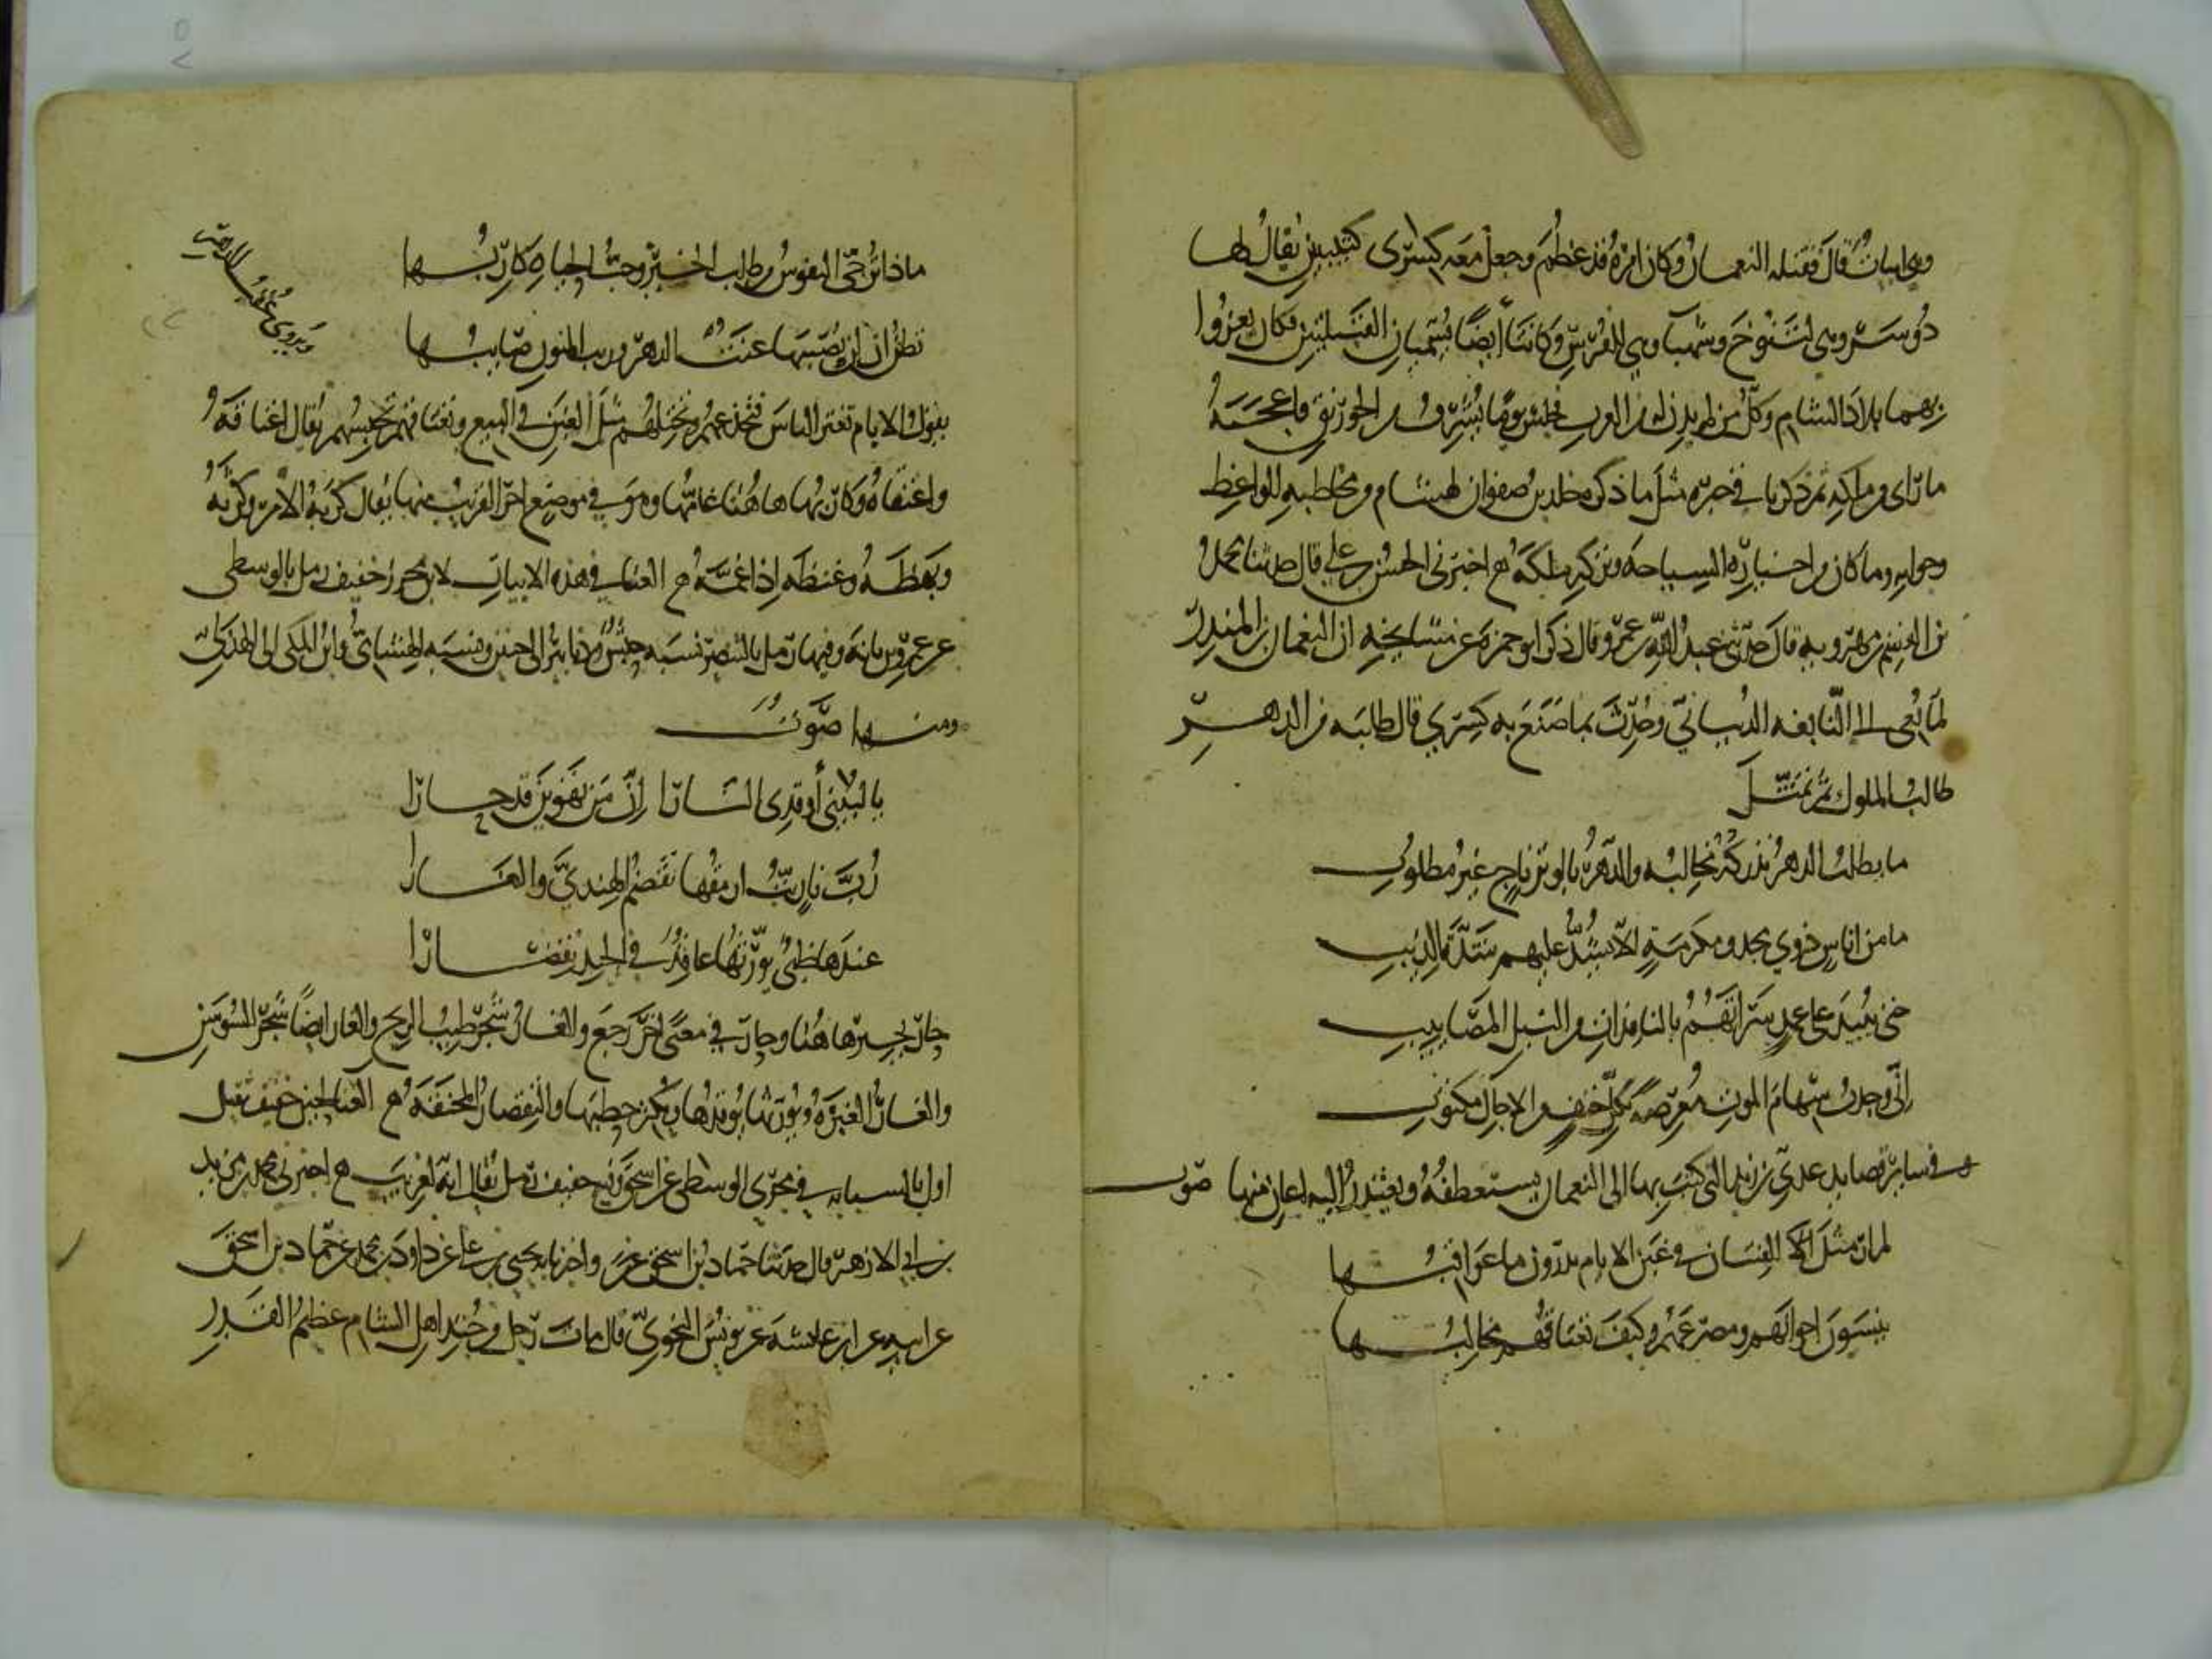 وهي ابيات قال فقتله النعمان وكان امره قد عظم وجعل معه كسرى كتيبتين يقال لها
دوسر وهي لتنوخ وشهبا وهي للفرس وكانتا أيضا تسميان القبيلتين فكان يغزوا
بهما بلاد الشام وكل من لم يدن له من العرب فجلس يوما يشرف من الخورنق فاعجبه
ما راى من ملكه ثم ذكر باقي خبره مثل ما ذكر مخلد بن صفوان لهشام ومخاطبته للواعظ
وجوابه وما كان من اختياره السياحة وتركه ملكه هـ اخبرني الحسن بن علي قال حدثنا محمد
بن القسم بن مهرويه قال حدثني عبد الله بن عمرو قال ذكر ابو حمزة عن مشايخه ان النعمان بن المنذر
لما نعي الى النابغة الذبياني وحدث بما صنع به كسرى قال طلبه من الدهر
طالب الملوك ثم تمثل
ما يطلب الدهر تدركه مخالبه والدهر بالوتر ناج غير مطلوب
ما من اناس ذوي مجد ومكرمة الا يشد عليهم شدة الذيب
حتى يبيد على عمد سراتهم بالنافذات من النبل المصاييب
اني وجدت سهام الموت معرضة بكل حتف من الاجال مكتوب
وفي ساير قصايد عدي بن زيد التي كتب بها الى النعمان يستعطفه ويعتذر اليه اغان منها صوت
لم ار مثل الفتيان في غبن الايام يدرون ما عواقبها
ينسون اخوانهم ومصرعهم وكيف تعتاقهم مخالبها
ماذا ترجي النفوس من طلب الخير وحب الحياة كاربها
تظن ان لن يصيبها عنت الدهر وريب المنون صايبها
ويروى عقب الدهر
يقول الايام تغبن الناس فتخدعهم وتختلهم مثل الغبن في البيع وتعتاقهم تحبسهم يقال اعتاقه
واعتقاه وكاربها هاهنا غامها وهو في موضع اخر القريب منها يقال كربه الامر وكرثه
وبهظه وغنظه اذا غمه هـ الغنا في هذه الابيات لابن محرز خفيف رمل بالوسطى
عن عمرو بن بانة وفيها رمل بالبنصر نسبه حبش ودنانير الى حنين ونسبه الهشامي وابن المكي الى الهذلي
ومنها صوت
يا لبينى أوقدي النارا ان من تهوين قد حارا
رب نار بت ارمقها تقضم الهندي والغارا
عندها ظبي يورثها عاقد في الجيد تقصارا
حار يحير هاهنا وحار في معنى اخر رجع والغار شجر طيب الريح والغار ايضا شجر السوسن
والغار الغيرة ويورثها يوقدها ويكثر حطبها والتقصار المخنقة هـ الغنا لحنين خفيف ثقيل
اول بالسبابة في مجرى الوسطى عن اسحق وفيه خفيف رمل يقال انه لعريب هـ اخبرني محمد بن مزيد
بن ابي الازهر قال حدثنا حماد بن اسحق عن واخبرنا يحيى بن علي عن داود بن محمد عن حماد بن اسحق
عن ابيه عن ابن عائشة عن يونس النحوي قال مات رجل من جند اهل الشام عظيم القدر